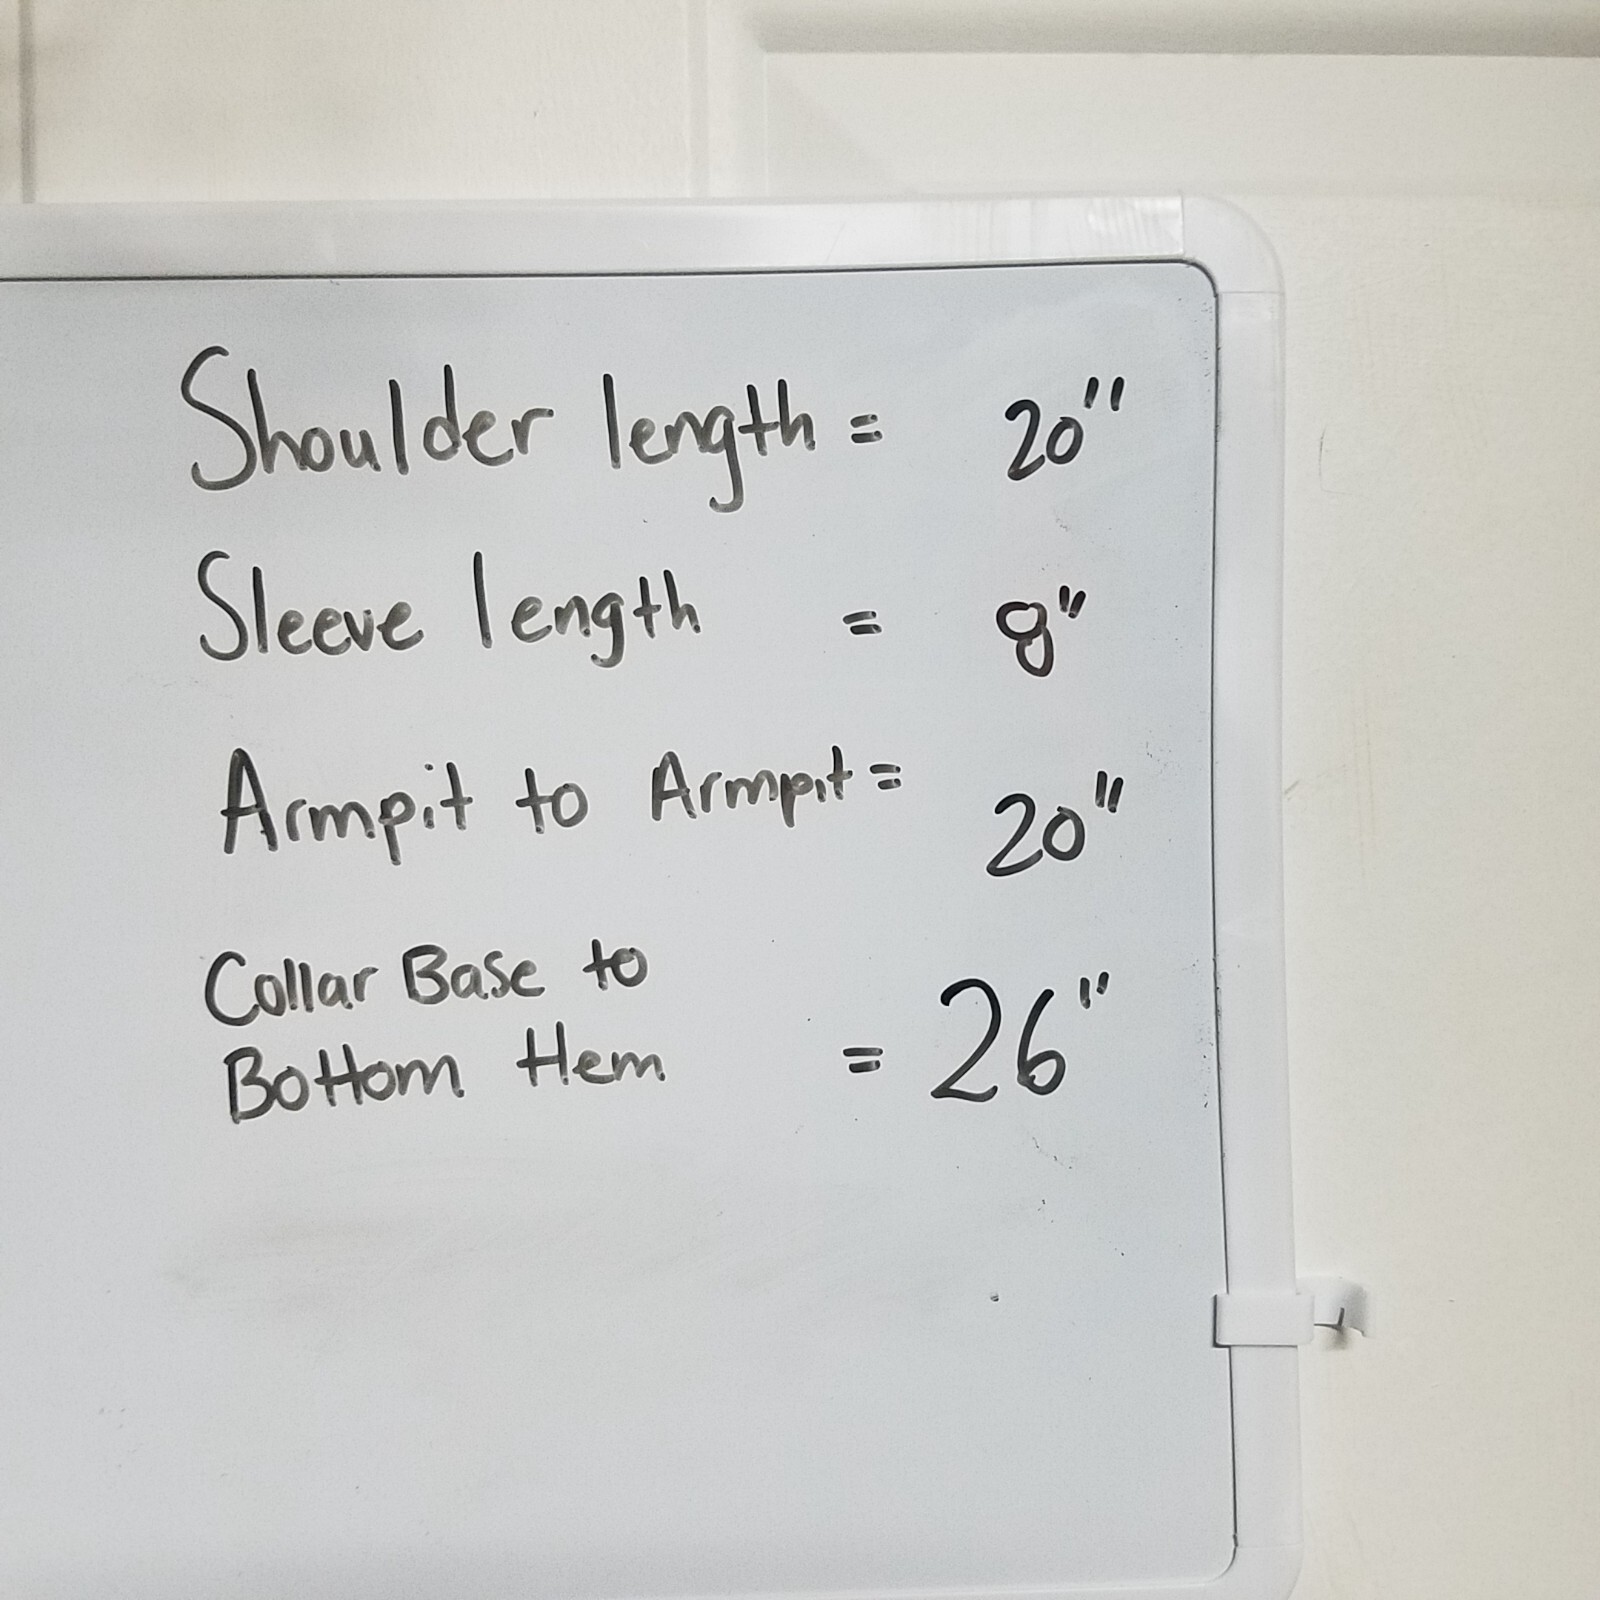 Shoulder length = 20"
Sleeve length = 8"
Armpit to Armpit = 20"
Collar Base to
Bottom Hem = 26"